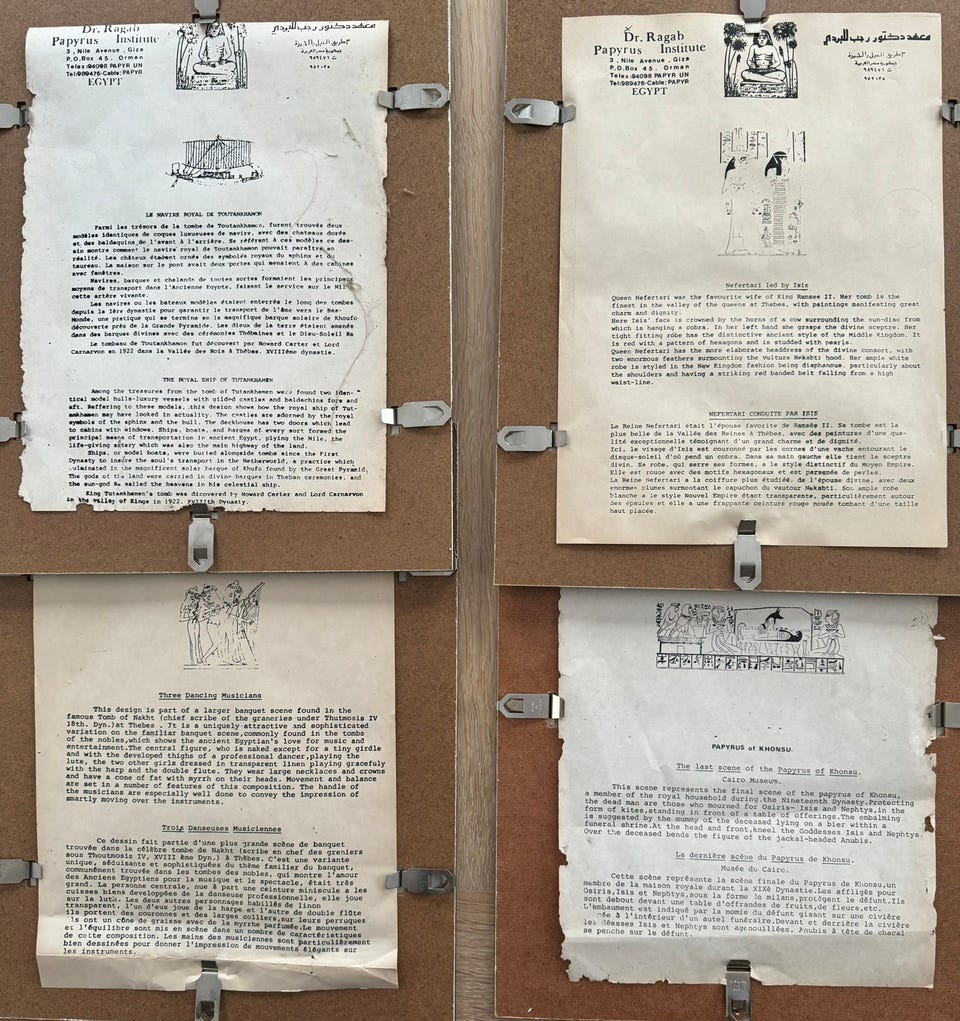 Dr. Ragab
Papyrus Institute
3, Nile Avenue, Giza
P.O.Box 45. Orman
Telex:94098 PAPYR UN
Tel:989476-Cable:PAPYR
EGYPT
معهد دكتور رجب للبردي
LE NAVIRE ROYAL DE TOUTANKHAMON
Parmi les trésors de la tombe de Toutankhamon, furent trouvés deux
modèles identiques de coques luxueuses de navire, avec des chateaux dorés
et des baldaquins de l'avant à l'arrière. Se référant à ces modèles ce des-
sin montre comment le navire royal de Toutankhamon pouvait paraître en
réalité. Les châteux étaient ornés des symboles royaux du sphinx et du
taureau. La maison sur le pont avait deux portes qui menaient à des cabines
avec fenêtres.
Navires, barques et chalands de toutes sortes formaient les principaux
moyens de transport dans l'Ancienne Egypte, faisant le service sur le Nil
cette artère vivante.
Les navires ou les bateaux modèles étaient enterrés le long des tombes
depuis la 1ère dynastie pour garantir le transport de l'âme vers le Bas-
Monde, une pratique qui se termina en la magnifique barque solaire de Khoufo
découverte près de la Grande Pyramide. Les dieux de la terre étaient amenés
dans des barques divines avec des cérémonies Thébaines et le Dieu-Soleil Ra
Le tombeau de Toutankhamon fut découvert par Howard Carter et Lord
Carnarvon en 1922 dans la Vallée des Rois à Thèbes. XVIIIème dynastie.
THE ROYAL SHIP OF TUTANKHAMEN
Among the treasures from the tomb of Tutankhamen were found two iden-
tical model hulls-luxury vessels with gilded castles and baldachins fore and
aft. Reffering to these models, this design shows how the royal ship of Tut-
ankhamen may have looked in actuality. The castles are adorned by the royal
symbols of the sphinx and the bull. The deckhouse has two doors which lead
to cabins with windows. Ships, boats, and barges of every sort formed the
principal means of transportation in ancient Egypt, plying the Nile, the
life-giving artery which was also the main highway of the land.
Ships, or model boats, were buried alongside tombs since the First
Dynasty to insure the soul's transport in the Netherworld, a practice which
culminated in the magnificent solar barque of Khufo found by the Great Pyramid,
The gods of the land were carried in divine barques in Theban ceremonies, and
the sun-god Ra sailed the heavens in his celestial ship.
King Tutankhamen's tomb was dicovered by Howard Carter and Lord Carnarvon
in the valley of Kings in 1922. XVIIIth Dynasty.
Dr. Ragab
Papyrus Institute
3, Nile Avenue, Giza
P.O.Box 45. Orman
Telex:94098 PAPYR UN
Tel:989476-Cable:PAPYR
EGYPT
معهد دكتور رجب للبردي
Nefertari led by Isis
Queen Nefertari was the favourite wife of King Ramses II. Her tomb is the
finest in the valley of the queens at Thebes, with paintings manifesting great
charm and dignity.
Here Isis' face is crowned by the horns of a cow surrounding the sun-disc from
which is hanging a cobra. In her left hand she grasps the divine sceptre. Her
tight fitting robe has the distinctive ancient style of the Middle Kingdom. It
is red with a pattern of hexagons and is studded with pearls.
Queen Nefertari has the more elaborate headdress of the divine consort, with
two enormous feathers surmounting the vulture Nekabti hood. Her ample white
robe is styled in the New Kingdom fashion being diaphanous, particularly about
the shoulders and having a striking red banded belt falling from a high
waist-line.
NEFERTARI CONDUITE PAR ISIS
La Reine Nefertari était l'épouse favorite de Ramsés II. Sa tombe est la
plus belle de la Vallée des Reines à Thèbes, avec des peintures d'une qua-
lité exceptionnelle témoignant d'un grand charme et de dignité.
Ici, le visage d'Isis est couronné par les cornes d'une vache entourant le
disque-soleil d'où pend un cobra. Dans sa main gauche elle tient le sceptre
divin. Sa robe, qui serre ses formes, a le style distinctif du Moyen Empire.
Elle est rouge avec des motifs hexagonaux et est parsemée de perles.
La Reine Nefertari a la coiffure plus étudiée de l'épouse divine, avec deux
enormes plumes surmontant le capuchon du vautour Nekabti. Son ample robe
blanche a le style Nouvel Empire étant transparente, particulièrement autour
des épaules et elle a une frappante ceinture rouge nouée tombant d'une taille
haut placée.
Three Dancing Musicians
This design is part of a larger banquet scene found in the
famous Tomb of Nakht (chief scribe of the graneries under Thutmosis IV
18th. Dyn.)at Thebes . It is a uniquely attractive and sophisticated
variation on the familiar banquet scene,commonly found in the tombs
of the nobles,which shows the ancient Egyptian's love for music and
entertainment.The central figure, who is naked except for a tiny girdle
and with the developed thighs of a professional dancer,playing the
lute, the two other girls dressed in transparent linen playing gracefuly
with the harp and the double flute. They wear large necklaces and crowns
and have a cone of fat with myrrh on their heads. Movement and balance
are set in a number of features of this composition. The handle of
the musicians are especially well done to convey the impression of
smartly moving over the instruments.
Trois Danseuses Musiciennes
Ce dessin fait partie d'une plus grande scène de banquet
trouvée dans la célèbre tombe de Nakht (scribe en chef des greniers
sous Thoutmosis IV, XVIII ème Dyn.) à Thèbes. C'est une variante
unique, séduisante et sophistiquée du thème familier du banquet,
communément trouvée dans les tombes des nobles, qui montre l'amour
des Anciens Egyptiens pour la musique et le spectacle, était très
grand. La personne centrale, nue à part une ceinture miniscule a les
cuisses bien developpées de la danseuse professionnelle, elle joue
sur la luth. Les deux autres personnages habillés de linon
transparent, l'un d'eux joue de la harpe et l'autre de double flûte
ils portent des couronnes et des larges colliers,sur leurs perruques
ils ont un cône de graisse avec de la myrrhe parfumée.Le mouvement
et l'équilibre sont mis en scène dans un nombre de caractéristiques
de cette composition. Les mains des musiciennes sont particulièrement
bien dessinées pour donner l'impression de mouvements élégants sur
les instruments.
PAPYRUS of KHONSU
The last scene of the Papyrus of Khonsu.
Cairo Museum.
This scene represents the final scene of the papyrus of Khonsu,
a member of the royal household during the Nineteenth Dynasty.Protecting
the dead man are those who mourned for Osiris- Isis and Nephtys,in the
form of kites,standing in front of a table of offerings.The embalming
is suggested by the mummy of the deceased lying on a bier within a
funeral shrine.At the head and front,kneel the Goddesses Isis and Nephtys.
Over the deceased bends the figure of the jackal-headed Anubis.
La dernière scène du Papyrus de Khonsu.
Musée du Cairo.
Cette scène représente la scène finale du Papyrus de Khonsu,un
membre de la maison royale durant la XIXè Dynastie.Les affligés pour
Osiris,Isis et Nephtys,sous la forme le milans,protègent le défunt.Ils
sont debout devant une table d'offrandes de fruits,de fleurs,etc.
L'embaument est indiqué par la momie du défunt gisant sur une civière
à l'intérieur d'un autel funéraire.Devant et derrière la civière
les déesses Isis et Nephtys sont agenouillées. Anubis à tête de chacal
se penche sur le défunt.